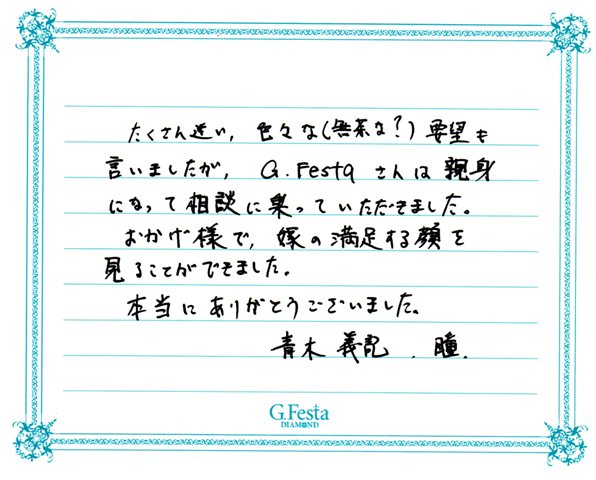 たくさん迷い，色々な(無茶な？)要望も
言いましたが，G.Festaさんは親身
になって相談に乗っていただきました。
おかげ様で，嫁の満足する顔を
見ることができました。
本当にありがとうございました。
青木 義記．瞳．
G.Festa
DIAMOND